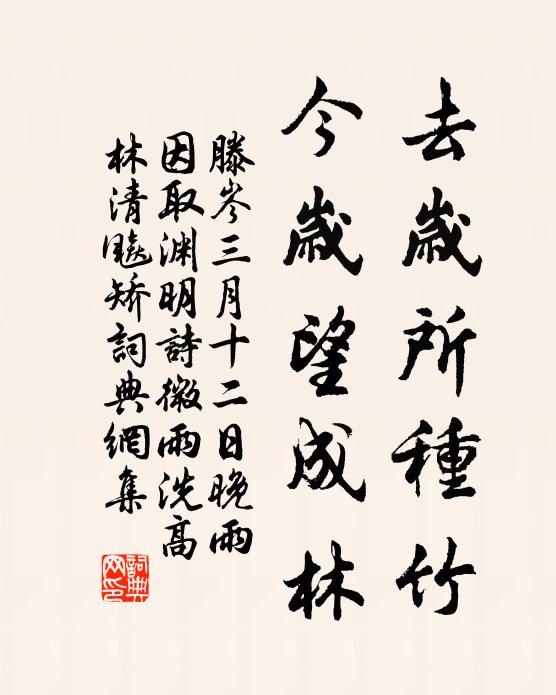 去歲所種竹
今歲望成林
滕岑三月十二日晚雨
因取淵明詩微雨洗高
林清飈矯詞典網集
詞典
网印